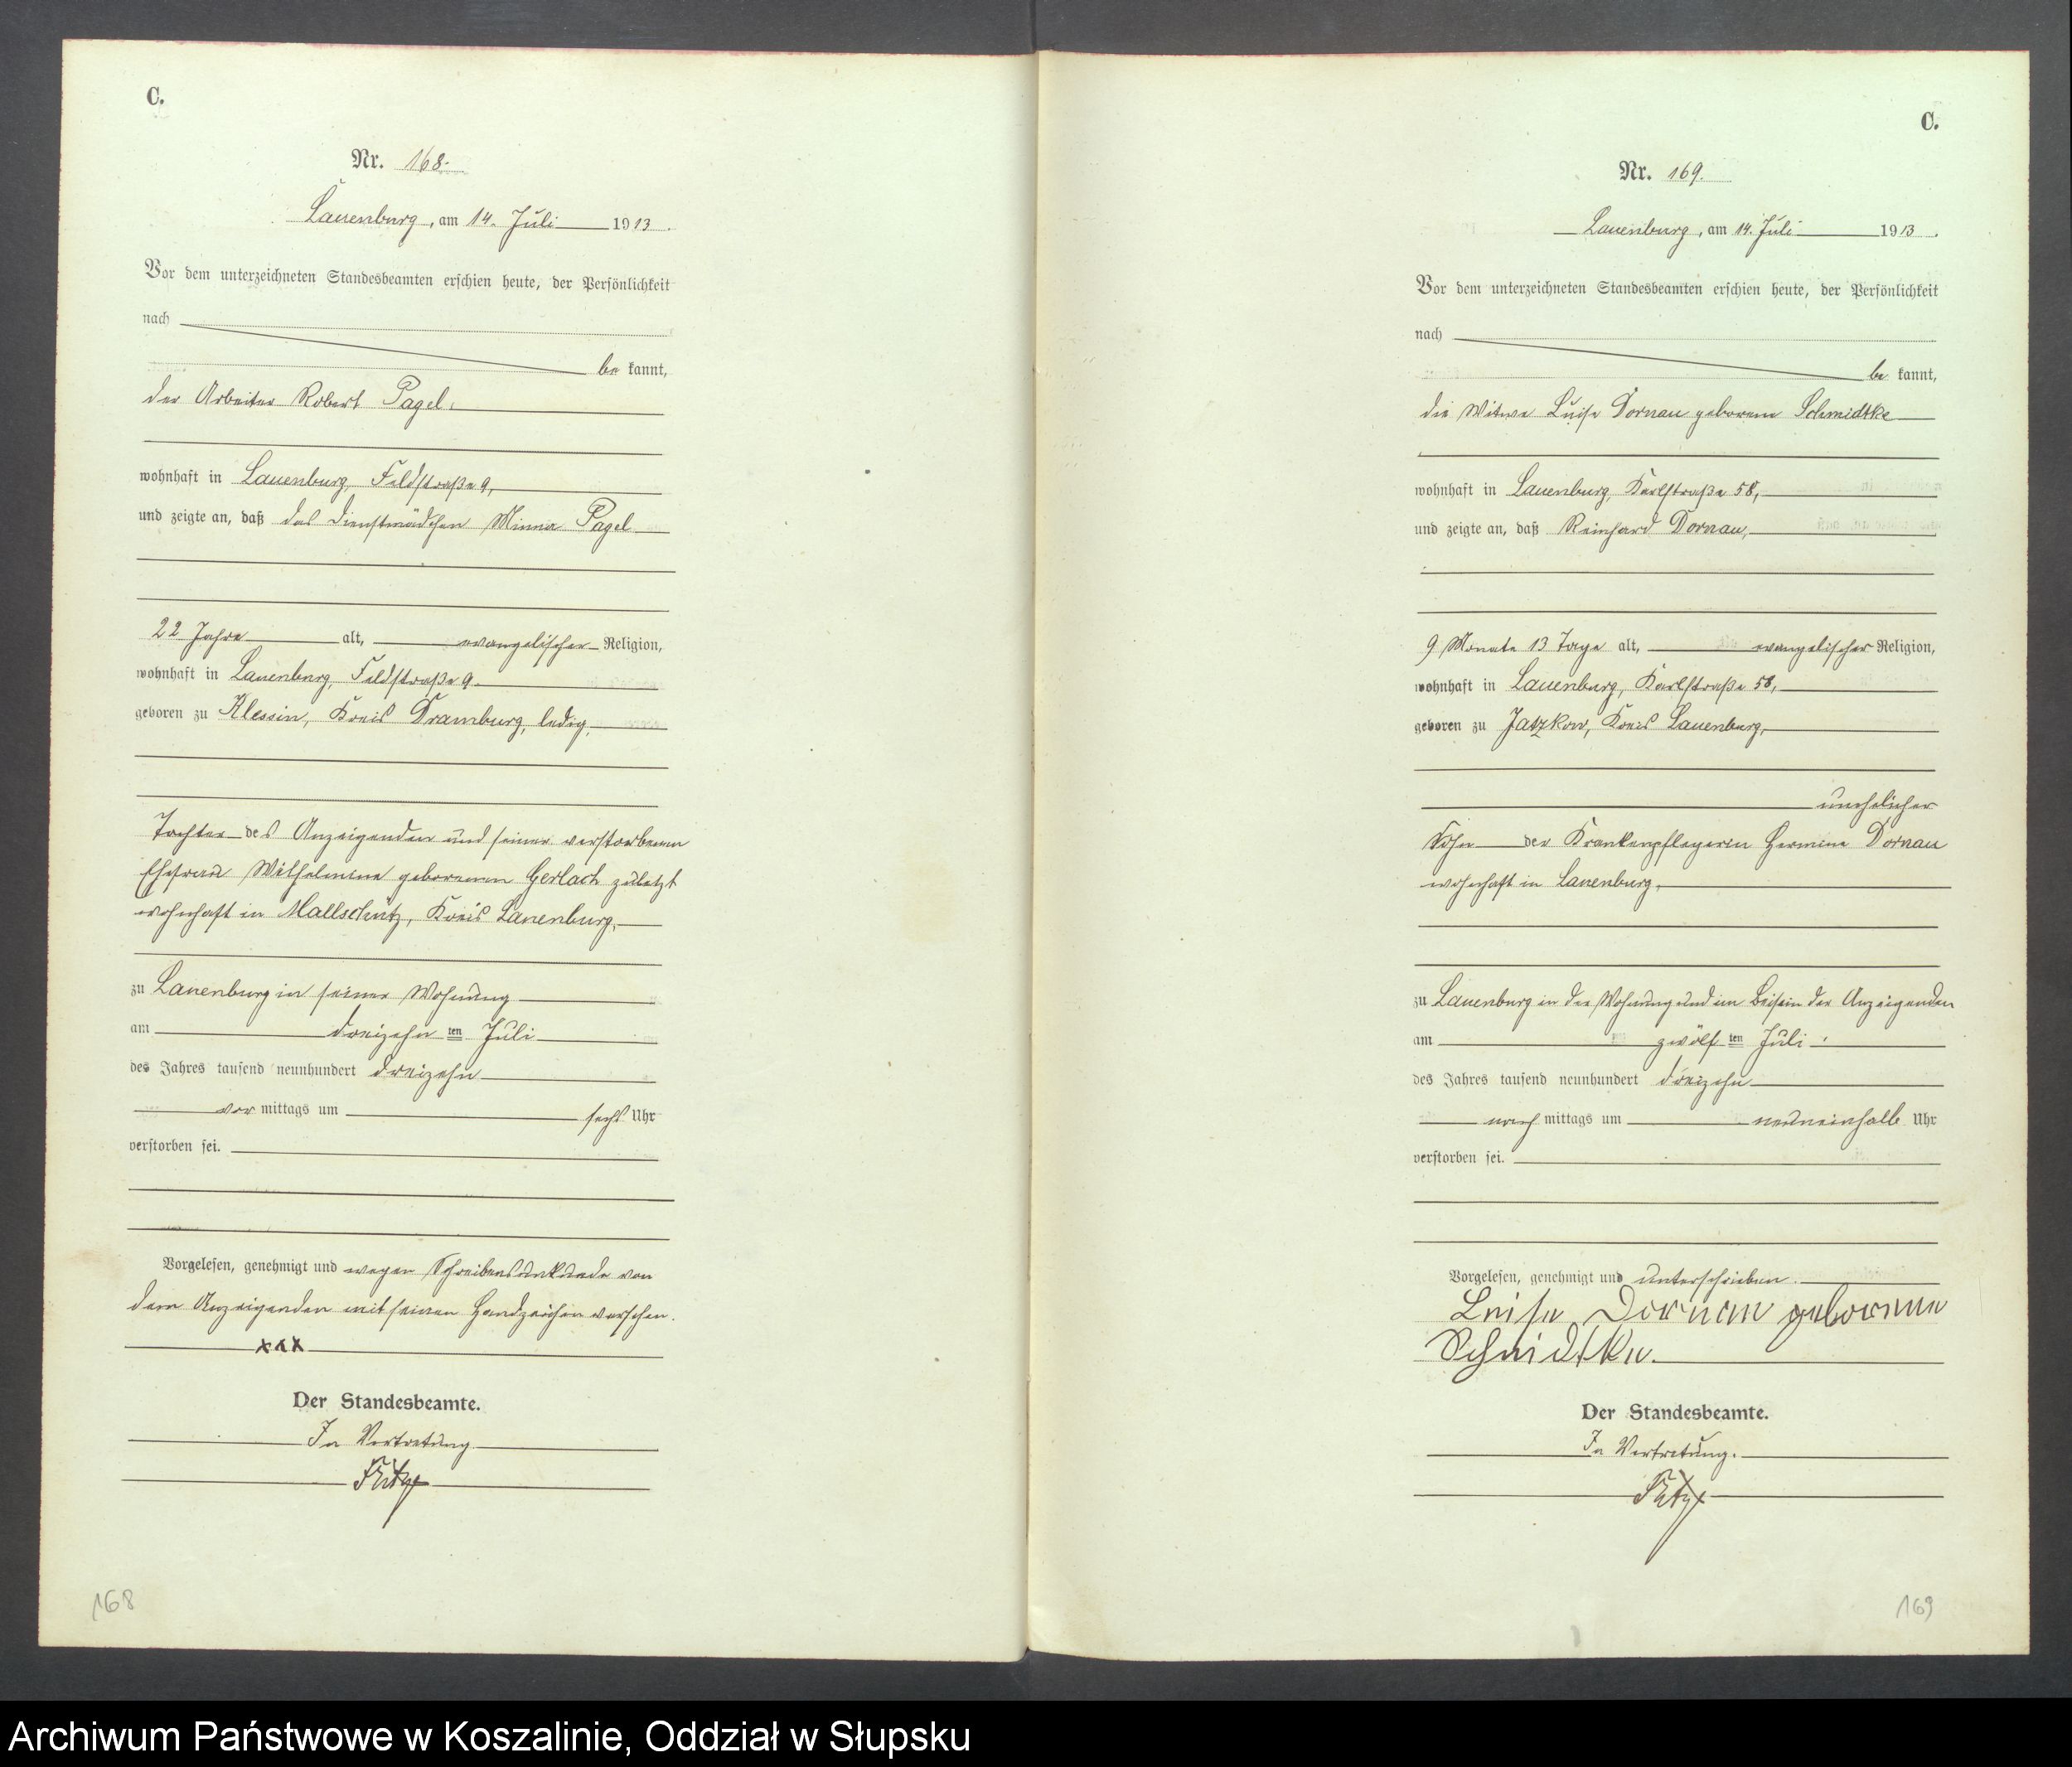 C.
Nr. 168.
Lauenburg, am 14. Juli 1913.
Vor dem unterzeichneten Standesbeamten erschien heute, der Persönlichkeit
nach
be kannt,
der Arbeiter Robert Pagel,
wohnhaft in Lauenburg, Feldstraße 9,
und zeigte an, daß das Dienstmädchen Minna Pagel
22 Jahre alt, evangelischer Religion,
wohnhaft in Lauenburg, Feldstraße 9
geboren zu Klessin, Kreis Dramburg, ledig,
Tochter des Anzeigenden und seiner verstorbenen
Ehefrau Wilhelmine geborenen Gerlach zuletzt
wohnhaft in Mallschütz, Kreis Lauenburg,
zu Lauenburg in seiner Wohnung
am dreizehn ten Juli
des Jahres tausend neunhundert dreizehn
vor mittags um sechs Uhr
verstorben sei.
Vorgelesen, genehmigt und wegen Schreibensunkunde von
dem Anzeigenden mit seinen Handzeichen versehen.
xxx
Der Standesbeamte.
In Vertretung.
168
C.
Nr. 169.
Lauenburg, am 14. Juli 1913.
Vor dem unterzeichneten Standesbeamten erschien heute, der Persönlichkeit
nach
be kannt,
die Witwe Luise Dornau geborene Schmidtke
wohnhaft in Lauenburg, Karlstraße 58,
und zeigte an, daß Reinhard Dornau,
9 Monate 13 Tage alt, evangelischer Religion,
wohnhaft in Lauenburg, Karlstraße 58,
geboren zu Jatzkow, Kreis Lauenburg,
unehelicher
Sohn der Krankenpflegerin Hermine Dornau
wohnhaft in Lauenburg,
zu Lauenburg in der Wohnung und im Beisein der Anzeigenden
am zwölf ten Juli
des Jahres tausend neunhundert dreizehn
nach mittags um neuneinhalb Uhr
verstorben sei.
Vorgelesen, genehmigt und unterschrieben.
Luise Dornau geborene
Schmidtke.
Der Standesbeamte.
In Vertretung.
169
Archiwum Państwowe w Koszalinie, Oddział w Słupsku